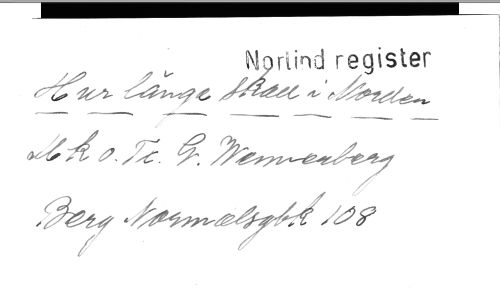 Norlind register
Hur länge skall i Norden
Mk o. Tc. G. Wennerberg
Berg Normalsgbk 108